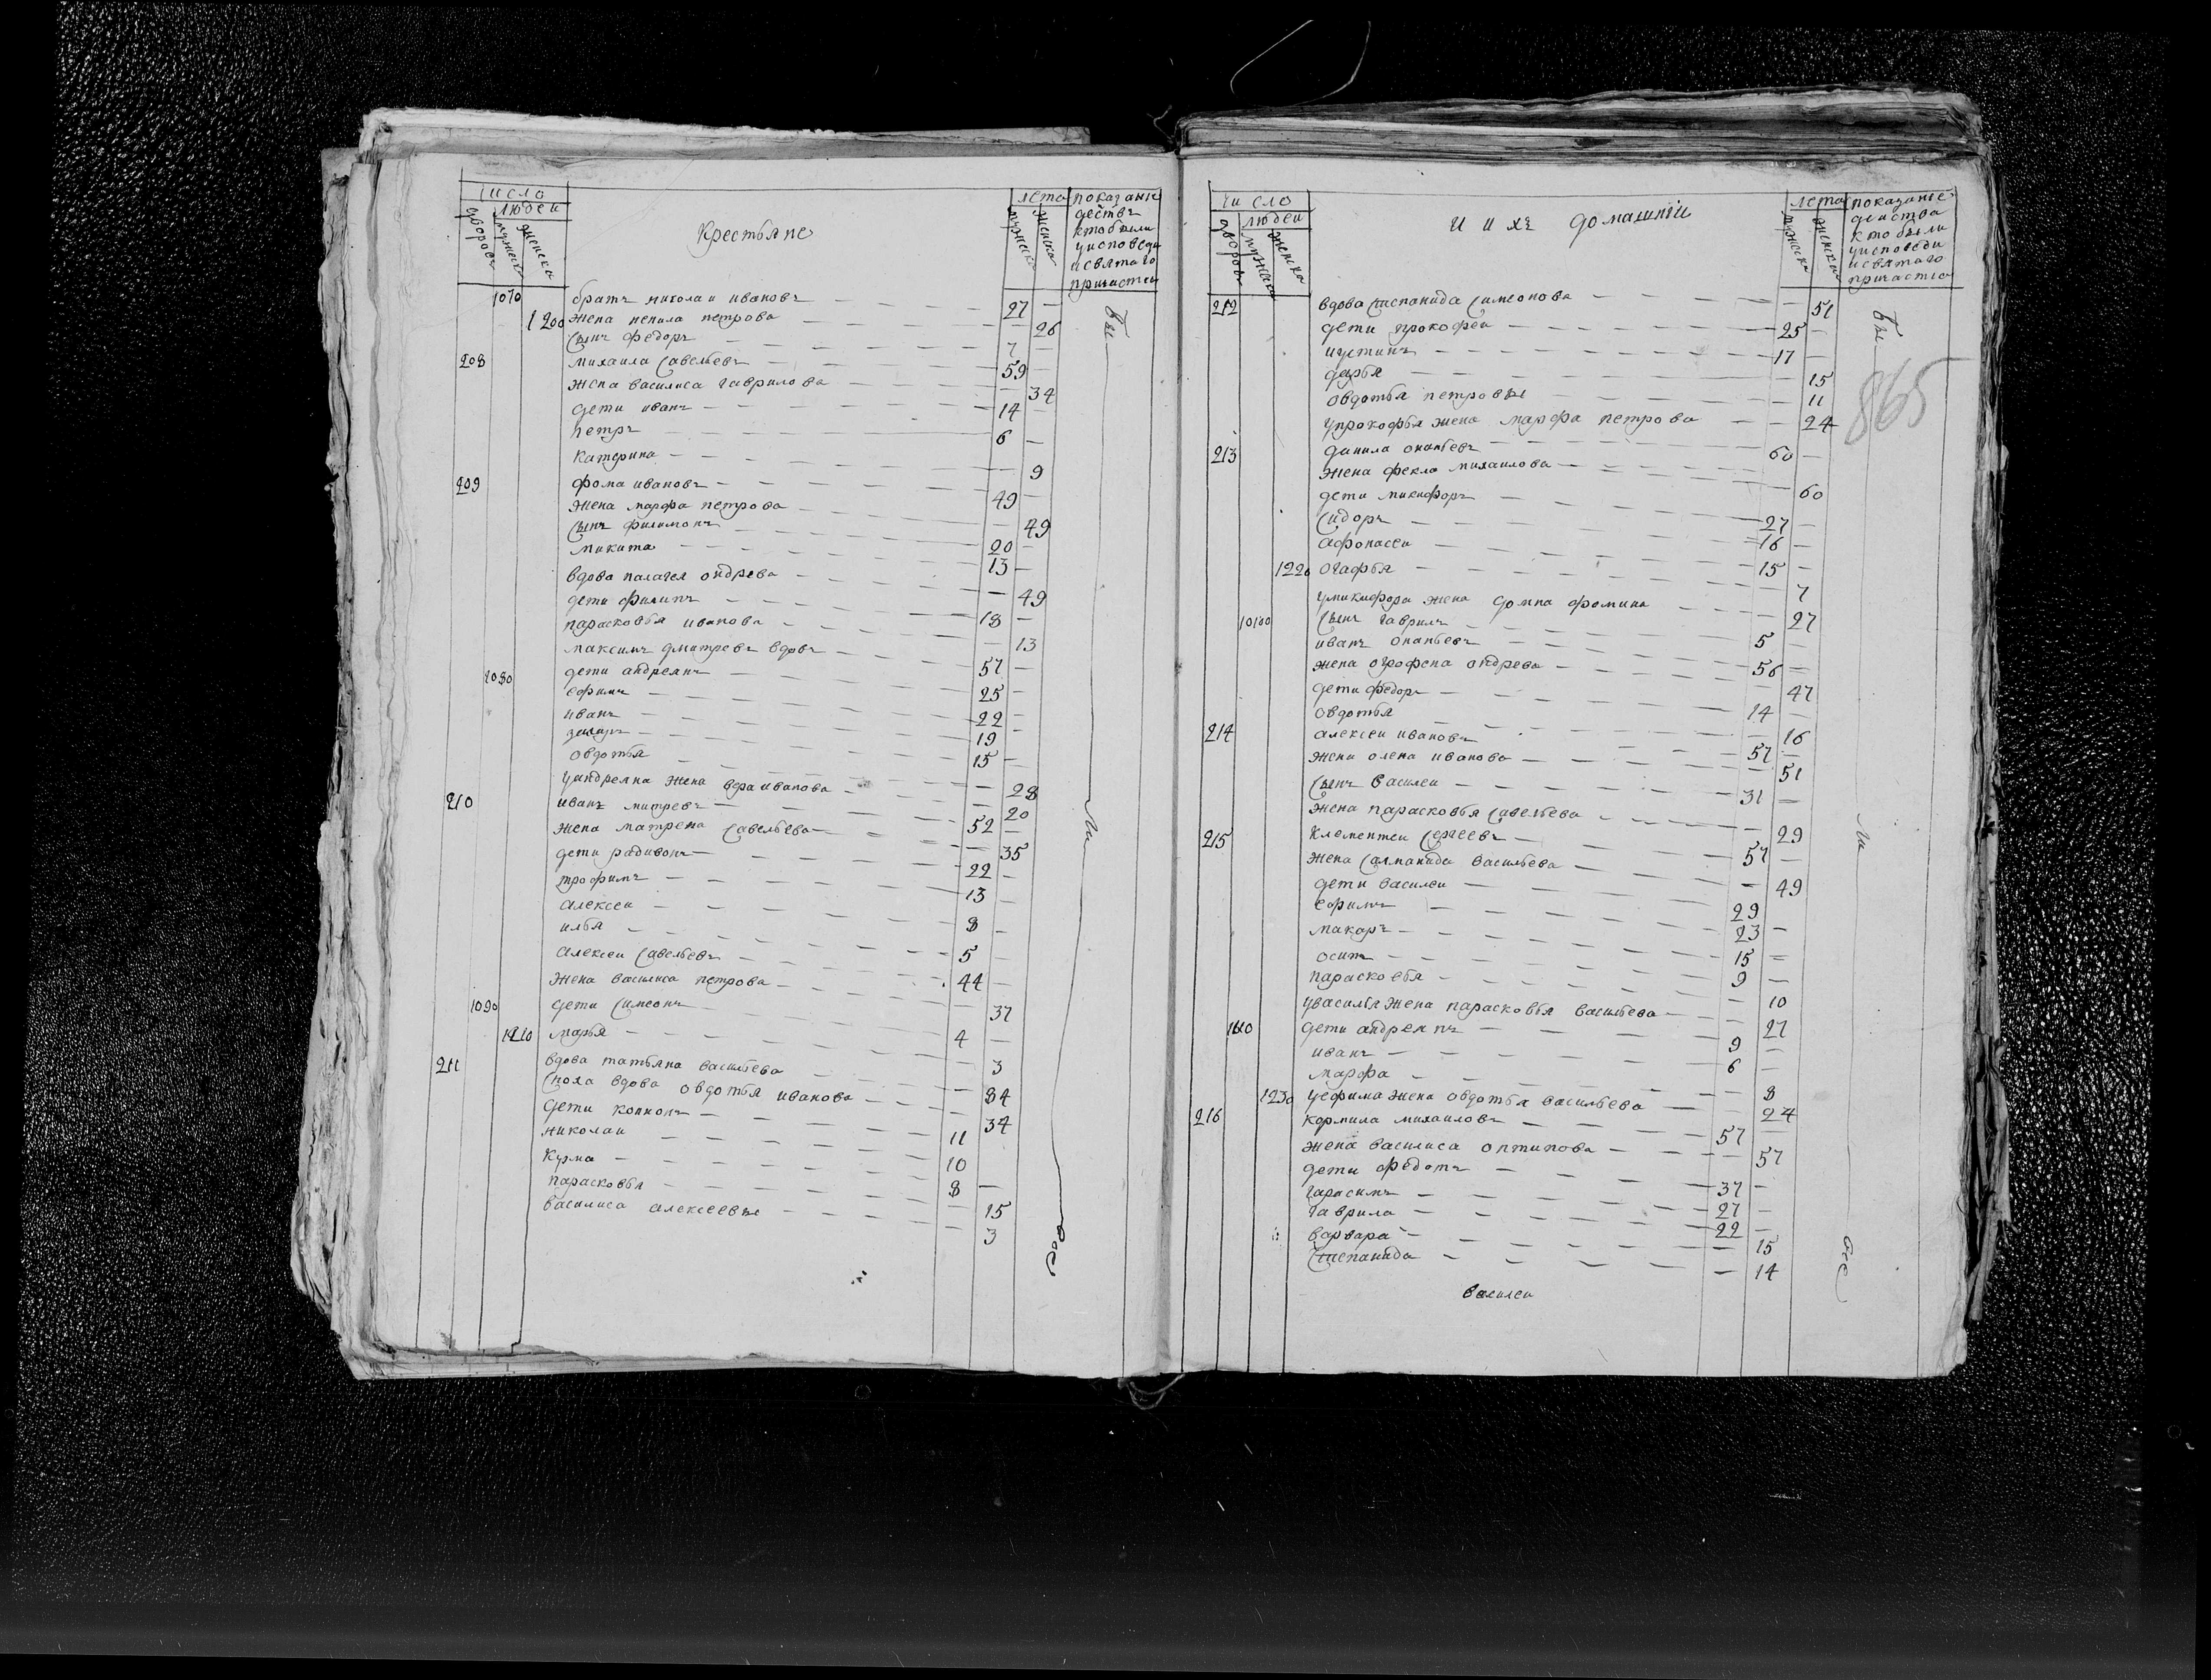 число
людеи
дворовъ
мужеска
женска
Крестьяне
лета
мужеска
женска
показание
действъ
кто были
уисповеди
исвятаго
причастия
1070 братъ николаи ивановъ — 27 —
1200 жена ненила петрова — 26
сынъ федоръ — 7 —
208 михаила савельевъ — 59 —
жена василиса гаврилова — 34
дети иванъ — 14 —
петръ — 6 —
катерина — 9
209 фома ивановъ — 49 —
жена марфа петрова — 49
сынъ филимонъ — 20 —
микита — 13 —
вдова палагея ондрева — 49
дети филипъ — 18 —
парасковья иванова — 13
максимъ дмитревъ вдовъ — 57 —
1080 дети андреянъ — 25 —
ефимъ — 22 —
иванъ — 19 —
— 15 —
овдотья — 28
уандреяна жена иванова — 20
210 иванъ митревъ — 52 —
жена матрена савельева — 35
дети радивонъ — 22 —
трофимъ — 13 —
алексеи — 8 —
илья — 5 —
алексеи савельевъ — 44 —
жена василиса петрова — 37
1090 дети симеонъ — 4 —
1210 марья — 3
211 вдова татьяна васильева — 84
сноха вдова овдотья иванова — 34
дети кононъ — 11
николаи — 10
кузма — 8 —
парасковья — 15
василиса алексеевы — 3
бы
ли
все
число
людеи
дворовъ
мужеска
женска
И ихъ домашнии
лета
мужеска
женска
показание
действа
кто были
уисповеди
исвятаго
причастия
212 вдова степанида симеонова — 51
дети прокофеи — 25 —
иустинъ — 17 —
дарья — 15
овдотья петровы — 11
упрокофья жена марфа петрова — 24
213 данила онаньевъ — 60 —
жена фекла михаилова — 60
дети микифоръ — 27 —
сидоръ — 16 —
афонасеи — 15 —
1220 огафья — 7
умикифора жена домна фомина — 27
10100 сынъ гаврилъ — 5 —
иванъ онаньевъ — 56 —
жена огрофена ондрева — 47
дети федоръ — 14 —
овдотья — 16
214 алексеи ивановъ — 57 —
жена олена иванова — 51
сынъ василеи — 31 —
жена парасковья савельева — 29
215 клементеи сергеевъ — 57 —
жена васильева — 49
дети василеи — 29
ефимъ — 23 —
макаръ — 15 —
осипъ — 9 —
парасковья — 10
увасилья жена парасковья васильева — 27
1110 дети андреянъ — 9 —
иванъ — 6 —
марфа — 8
1230 уефима жена овдотья васильева — 24
216 кормила михаиловъ — 57 —
жена василиса онтипова — 57
дети федотъ — 37 —
гарасимъ — 27 —
гаврила — 22 —
варвара — 15
степанида — 14
василеи
бы
865
ли
все